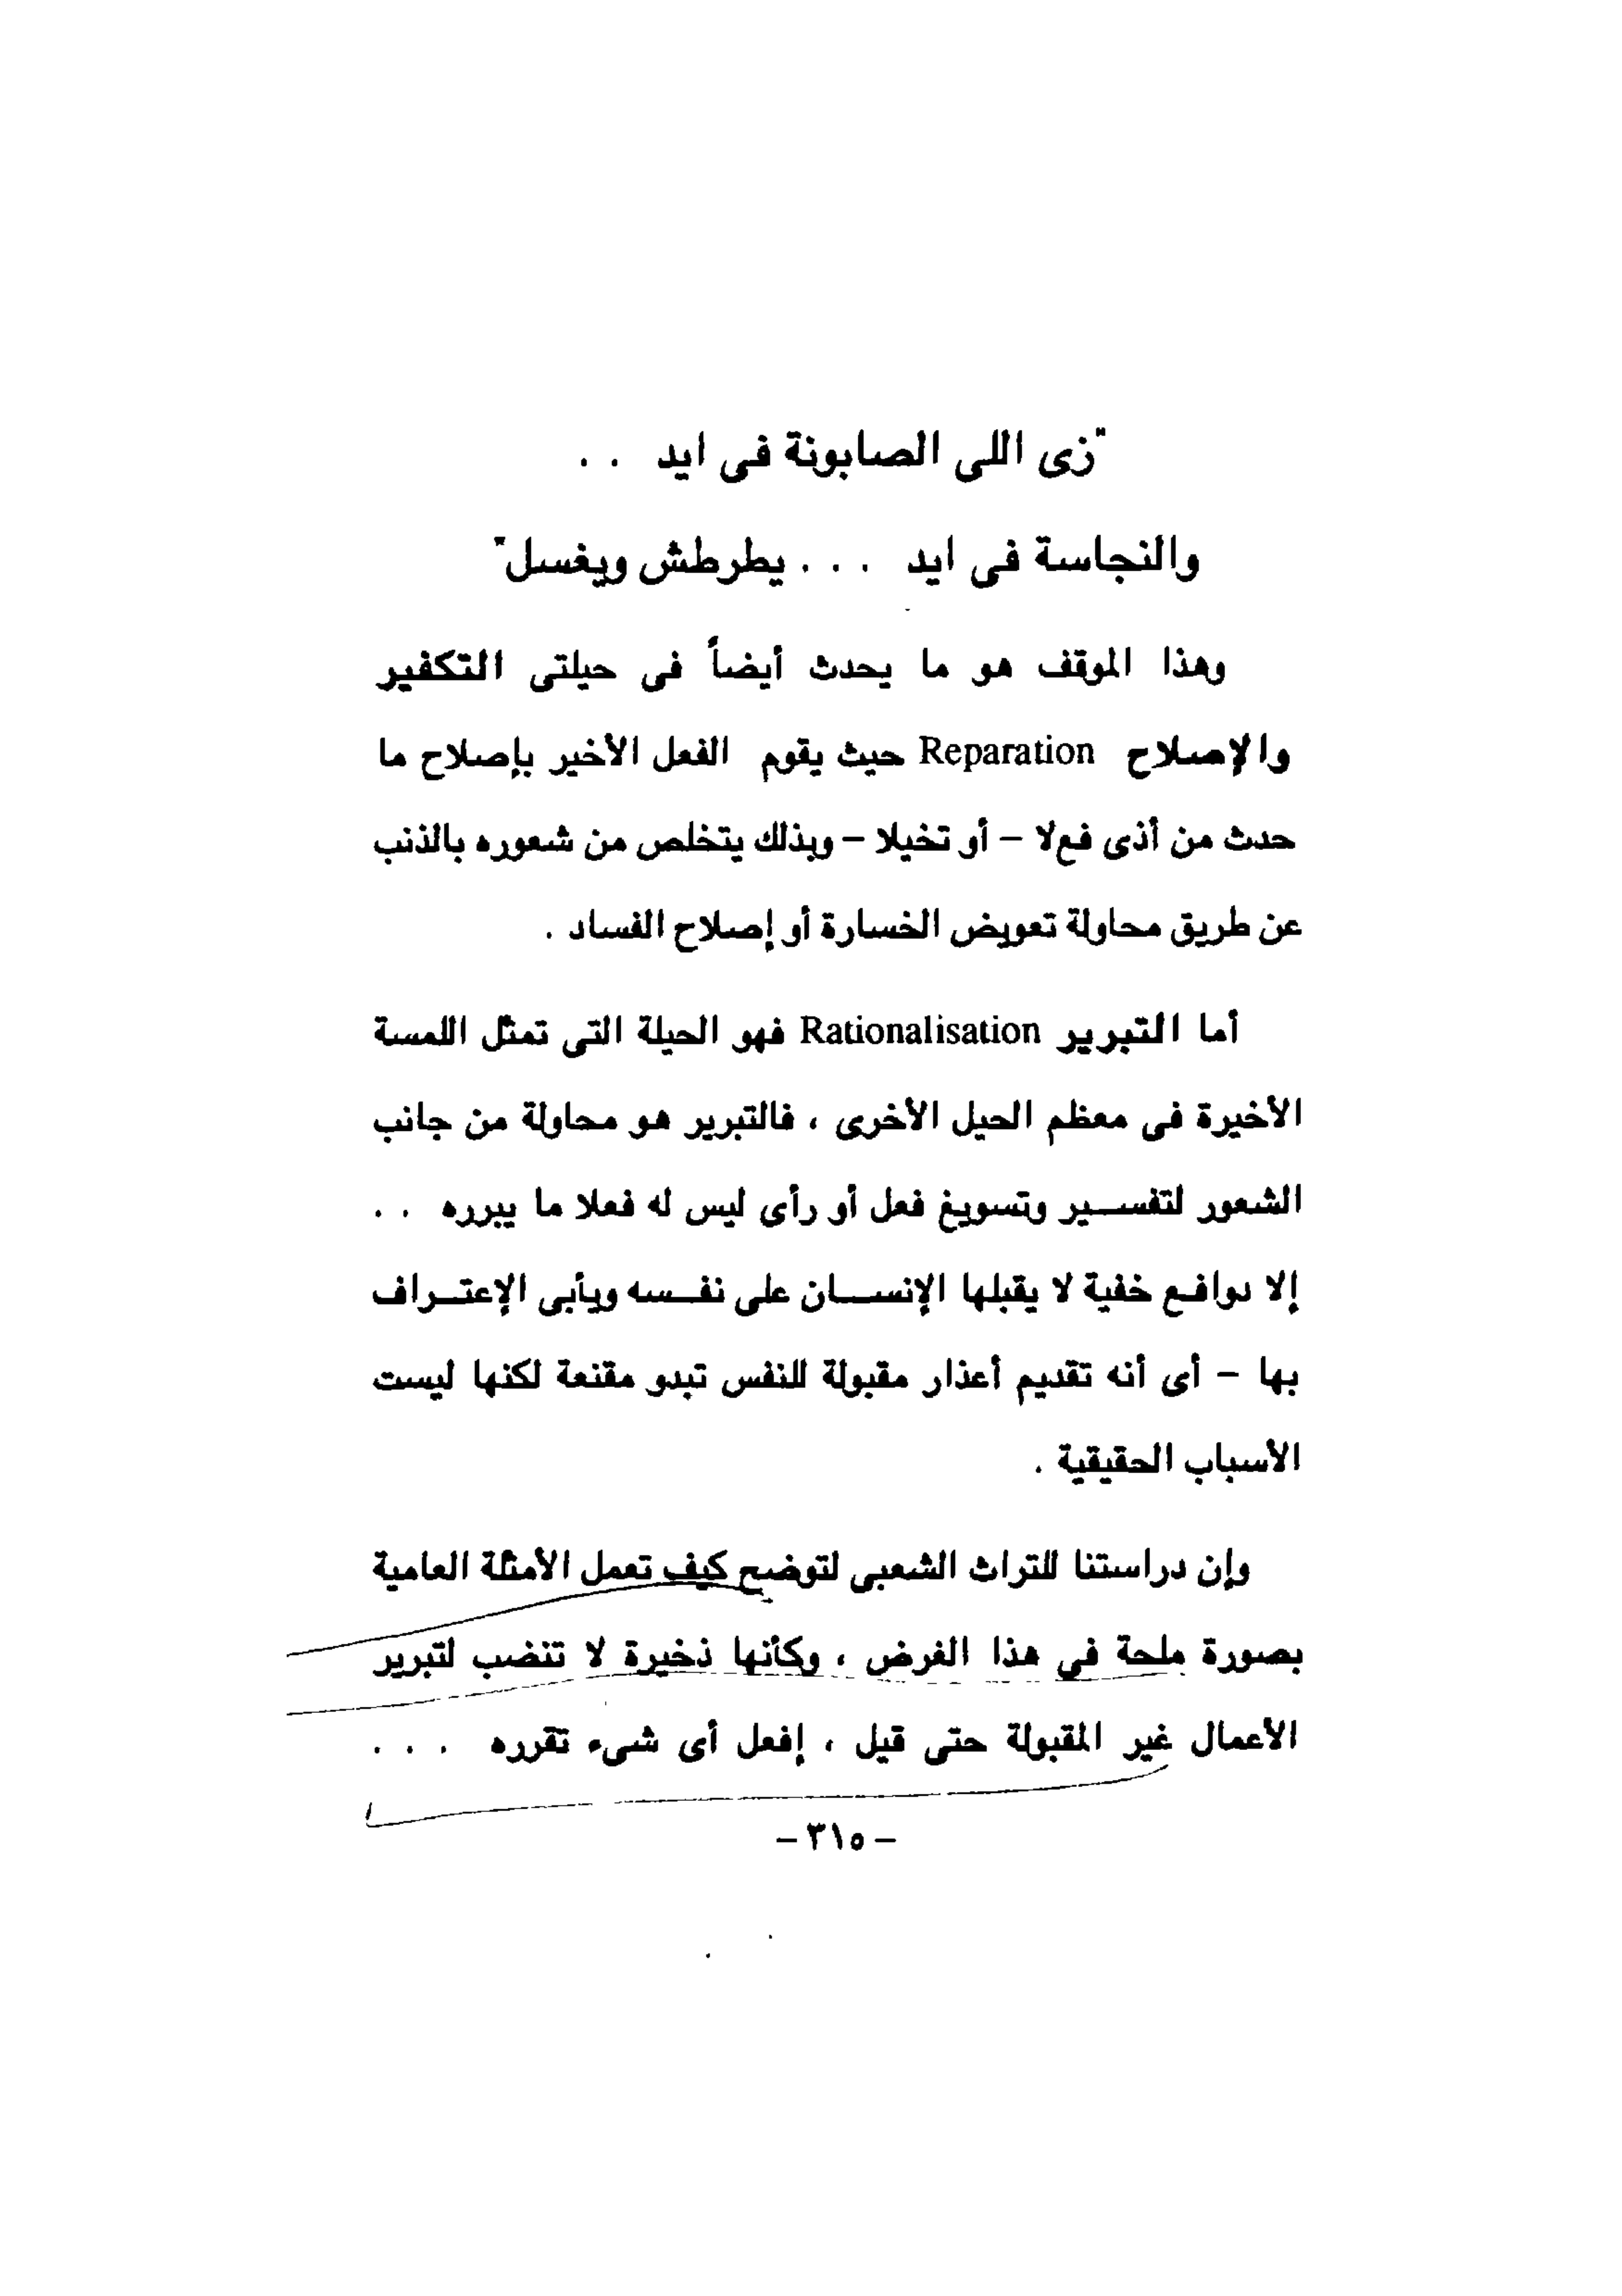 "زى اللى الصابونة فى ايد . .
والنجاسة فى ايد . . . يطرطش ويغسل"
وهذا الموقف هو ما يحدث أيضاً فى حيلتى التكفير
والإصلاح Reparation حيث يقوم الفعل الأخير بإصلاح ما
حدث من أذى فع‌لا – أو تخيلا – وبذلك يتخلص من شعوره بالذنب
عن طريق محاولة تعويض الخسارة أو إصلاح الفساد .
أما التبرير Rationalisation فهو الحيلة التى تمثل اللمسة
الأخيرة فى معظم الحيل الأخرى ، فالتبرير هو محاولة من جانب
الشعور لتفسير وتسويغ فعل أو رأى ليس له فعلا ما يبرره . .
إلا دوافع خفية لا يقبلها الإنسان على نفسه ويأبى الإعتراف
بها – أى أنه تقديم أعذار مقبولة للنفس تبدو مقنعة لكنها ليست
الأسباب الحقيقية .
وإن دراستنا للتراث الشعبى لتوضح كيف تعمل الأمثلة العامية
بصورة ملحة فى هذا الغرض ، وكأنها ذخيرة لا تنضب لتبرير
الأعمال غير المقبولة حتى قيل ، إفعل أى شىء تقرره . . .
– ٣١٥ –